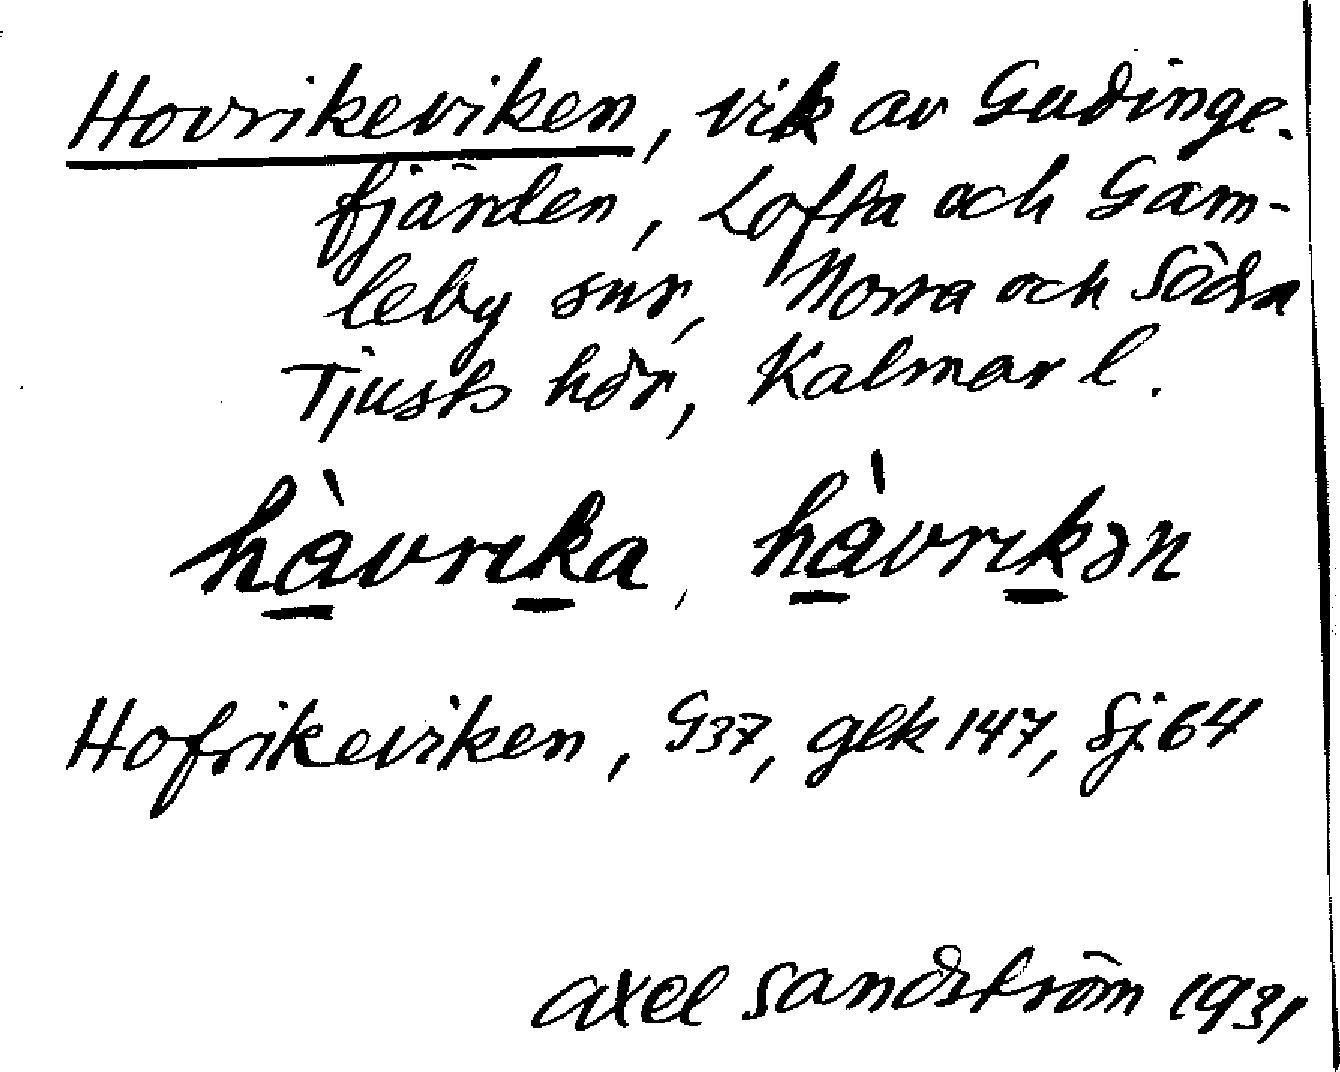 Hovrikeviken, vik av Gudinge-
fjärden, Lofta och Gam-
leby snr, Norra och Södra
Tjusts hdr, Kalmar l.
hàvrıka, hàvrıkən
Hofrikeviken, G37, glk 147, Sj.64
Axel Sandström 1931